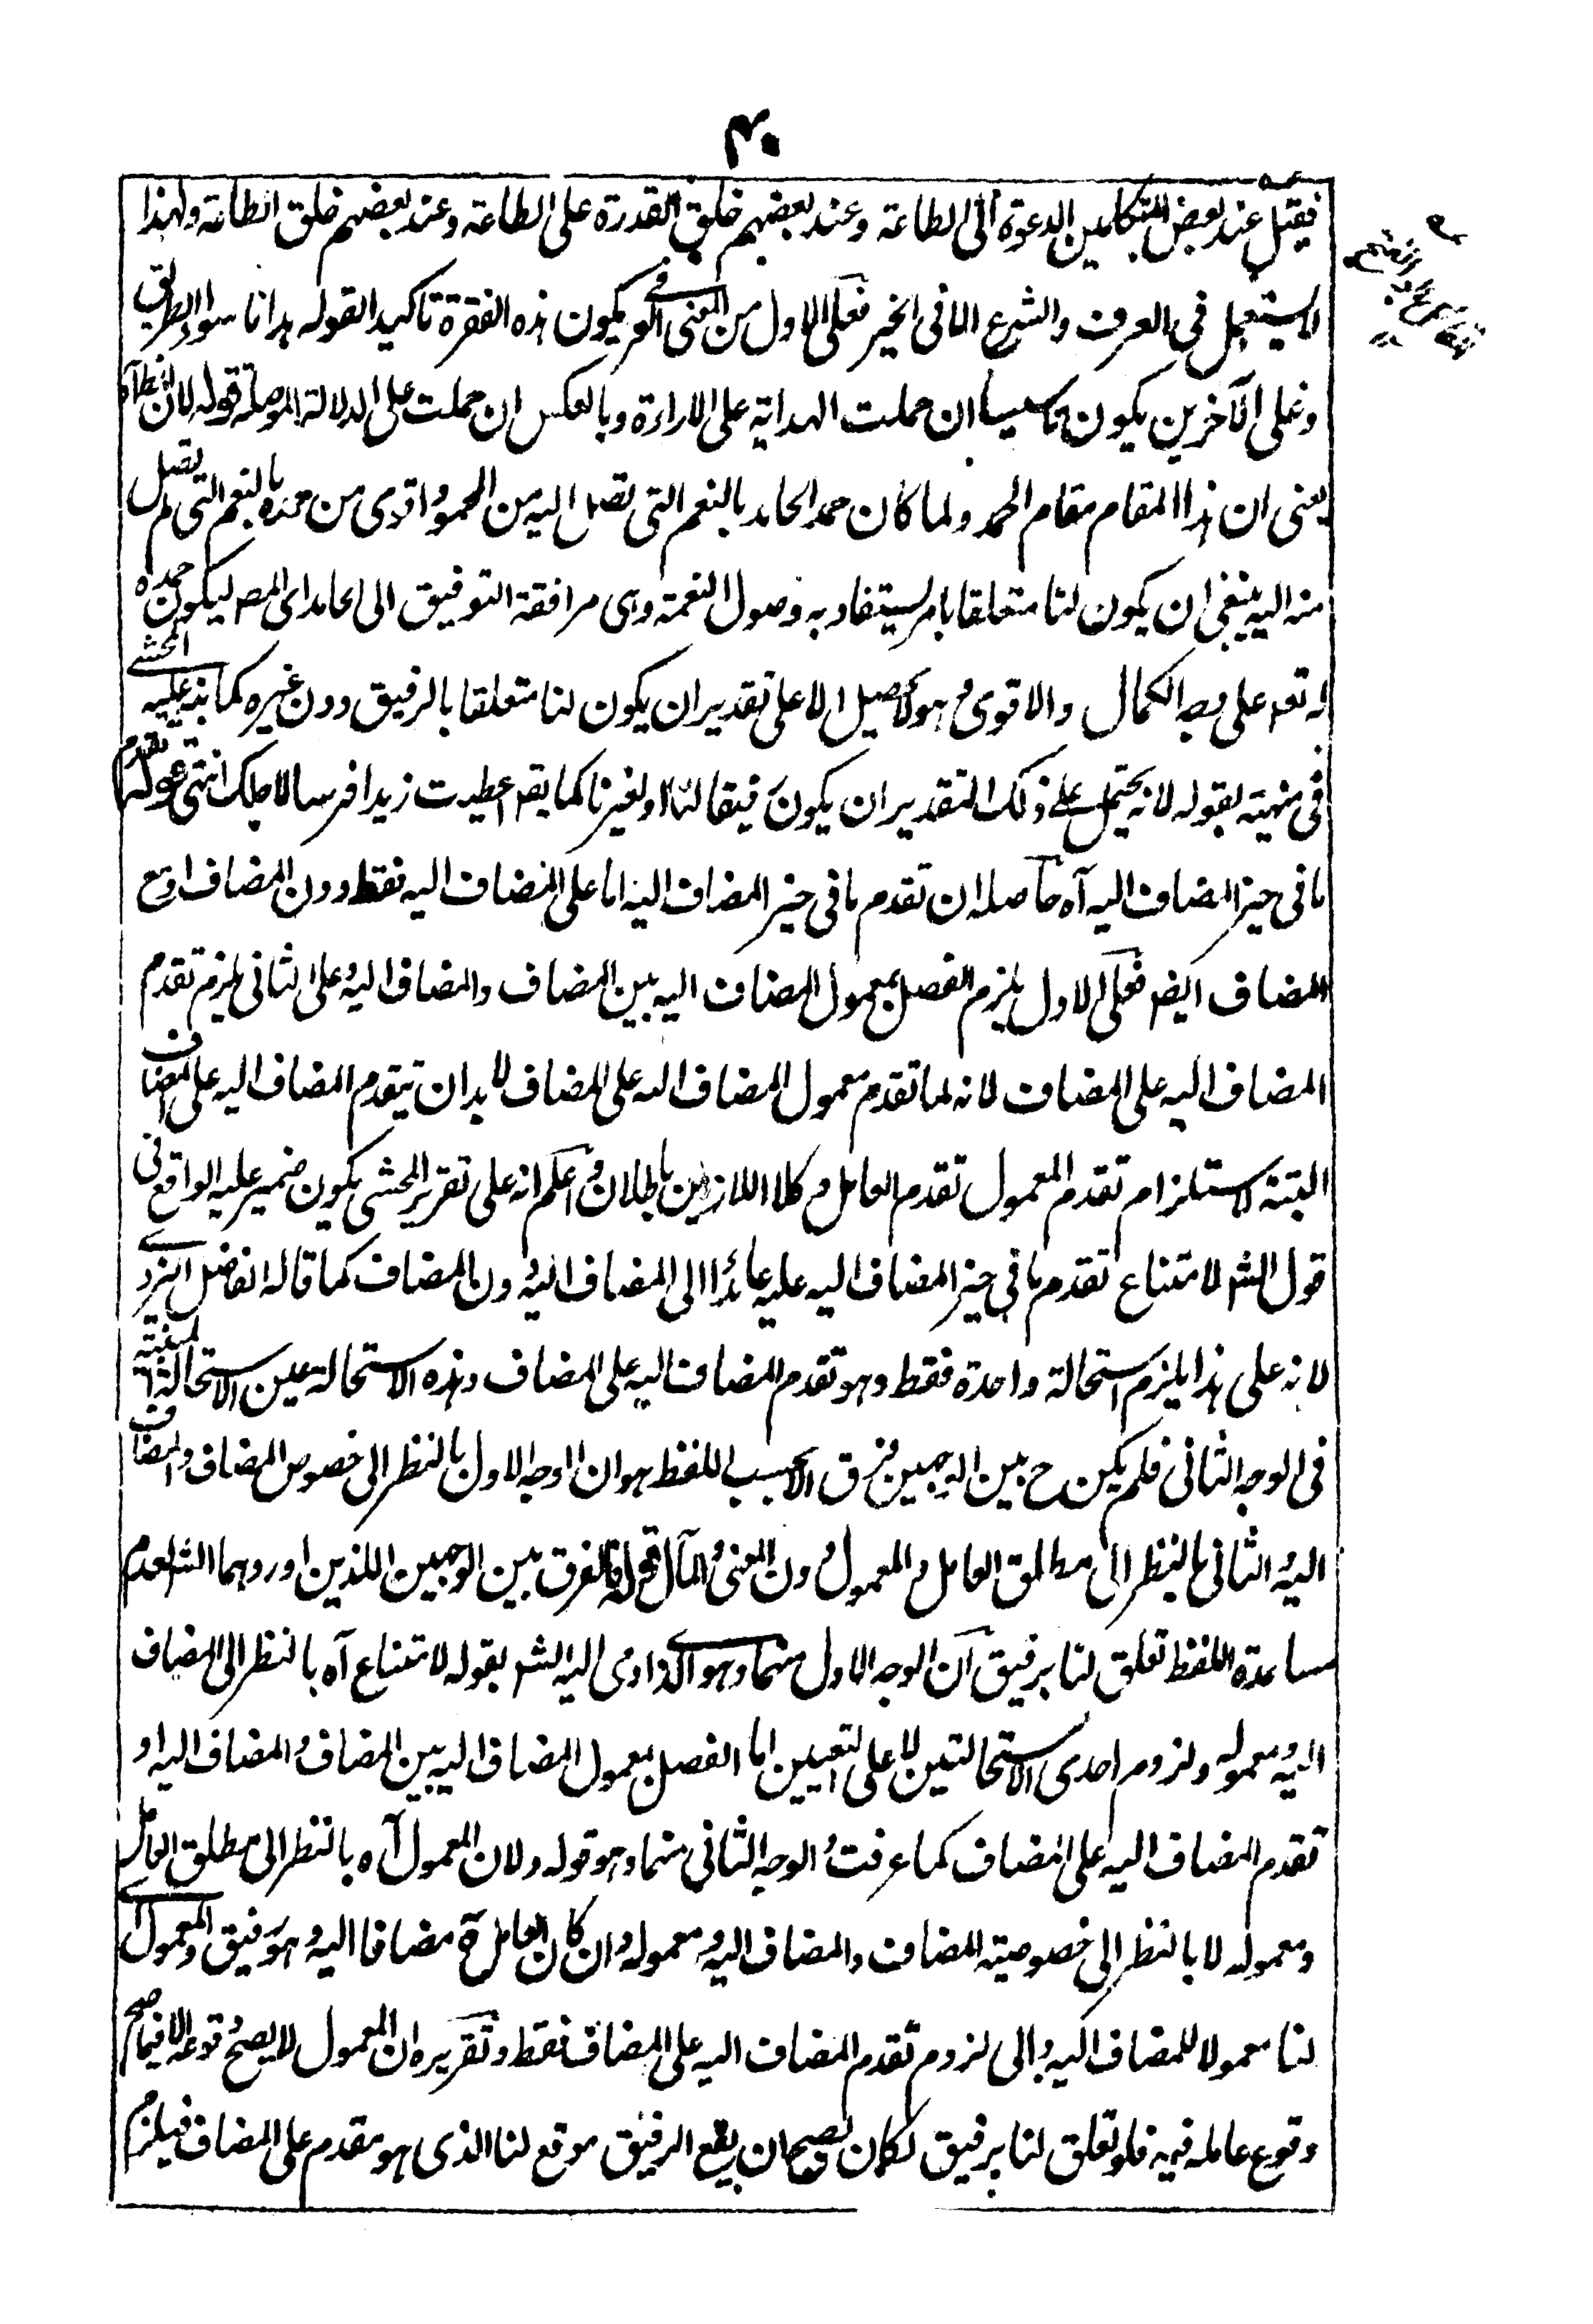 ۴۰
فقيل عند بعض المتكلمين الدعوة الى الطاعة وعند بعضهم خلق القدرة على الطاعة وعند بعضهم خلق الطاعة ولهذا
لا يستعمل فى العرف والشرع الا فى الخير فعلى الاول من المعنى العرفى يكون هذه الفقرة تاكيدا لقوله هدانا سواء الطريق
وعلى الآخرين يكون تاسيسا ان حملت الهداية على الاراءة وبالعكس ان حملت على الدلالة الموصلة قوله لان
يعنى ان هذا المقام مقام الحمد ولما كان حمد الحامد بالنعم التى تصل اليه من المحمود اقوى من حمده بالنعم التى لم تصل
منه اليه ينبغى ان يكون لنا متعلقا بامر يستفاد به وصول النعمة وهى مرافقة التوفيق الى الحامد اى المصـ ليكون حمده
له تعـ على وجه الكمال والاقوى و هو لا يحصل الا على تقدير ان يكون لنا متعلقا بالرفيق دون غيره كما نبه عليه المحشى
فى منهيته بقوله لانه يحتمل على ذلك التقدير ان يكون رفيقا لنا او لغيرنا كما يقـ اعطيت زيدا فرسا لاجلك انتهى قوله تقدم
ما فى حيز المضاف اليه آه حاصله ان تقدم ما فى حيز المضاف اليه اما على المضاف اليه فقط دون المضاف او مع
المضاف ايضـ فعلى الاول يلزم الفصل بمعمول المضاف اليه بين المضاف والمضاف اليه وعلى الثانى يلزم تقدم
المضاف اليه على المضاف لانه لما تقدم معمول المضاف اليه على المضاف لا بد ان يتقدم المضاف اليه على المضاف
البتة لاستلزام تقدم المعمول تقدم العامل و كلا اللازمين باطلان و اعلم انه على تقرير المحشى يكون ضمير عليه الواقع فى
قول الشـ لامتناع تقدم ما فى حيز المضاف اليه عليه عائدا الى المضاف اليه دون المضاف كما قاله الفاضل اليزدى
لانه على هذا يلزم استحالة واحدة فقط وهو تقدم المضاف اليه على المضاف وهذه الاستحالة عين الاستحالة
فى الوجه الثانى فلم يكن ح بين الوجهين فرق الا بحسب اللفظ هو ان الوجه الاول بالنظر الى خصوص المضاف والمضاف
اليه و الثانى بالنظر الى مطلق العامل و المعمول دون المعنى و المآل قوله فالفرق بين الوجهين اللذين اوردهما الشـ لعدم
مساعدة اللفظ تعلق لنا برفيق ان الوجه الاول منهما وهو الذى اومى اليه الشـ بقوله لامتناع آه بالنظر الى المضاف
اليه و معموله ولزوم احدى الاستحالتين لا على التعيين اما الفصل بمعمول المضاف اليه بين المضاف و المضاف اليه او
تقدم المضاف اليه على المضاف كما عرفت و الوجه الثانى منهما وهو قوله ولان المعمول آه بالنظر الى مطلق العامل
ومعموله لا بالنظر الى خصوصية المضاف والمضاف اليه و معموله وان كان العامل ح مضافا اليه و هو رفيق والمعمول اى
لنا معمولا للمضاف اليه و الى لزوم تقدم المضاف اليه على المضاف فقط وتقريره ان المعمول لا يصح وقوعه الا فيما صح
وقوع عامله فيه فلو تعلق لنا برفيق لكان يصح ان يقع الرفيق موقع لنا الذى هو مقدم على المضاف فيلزم